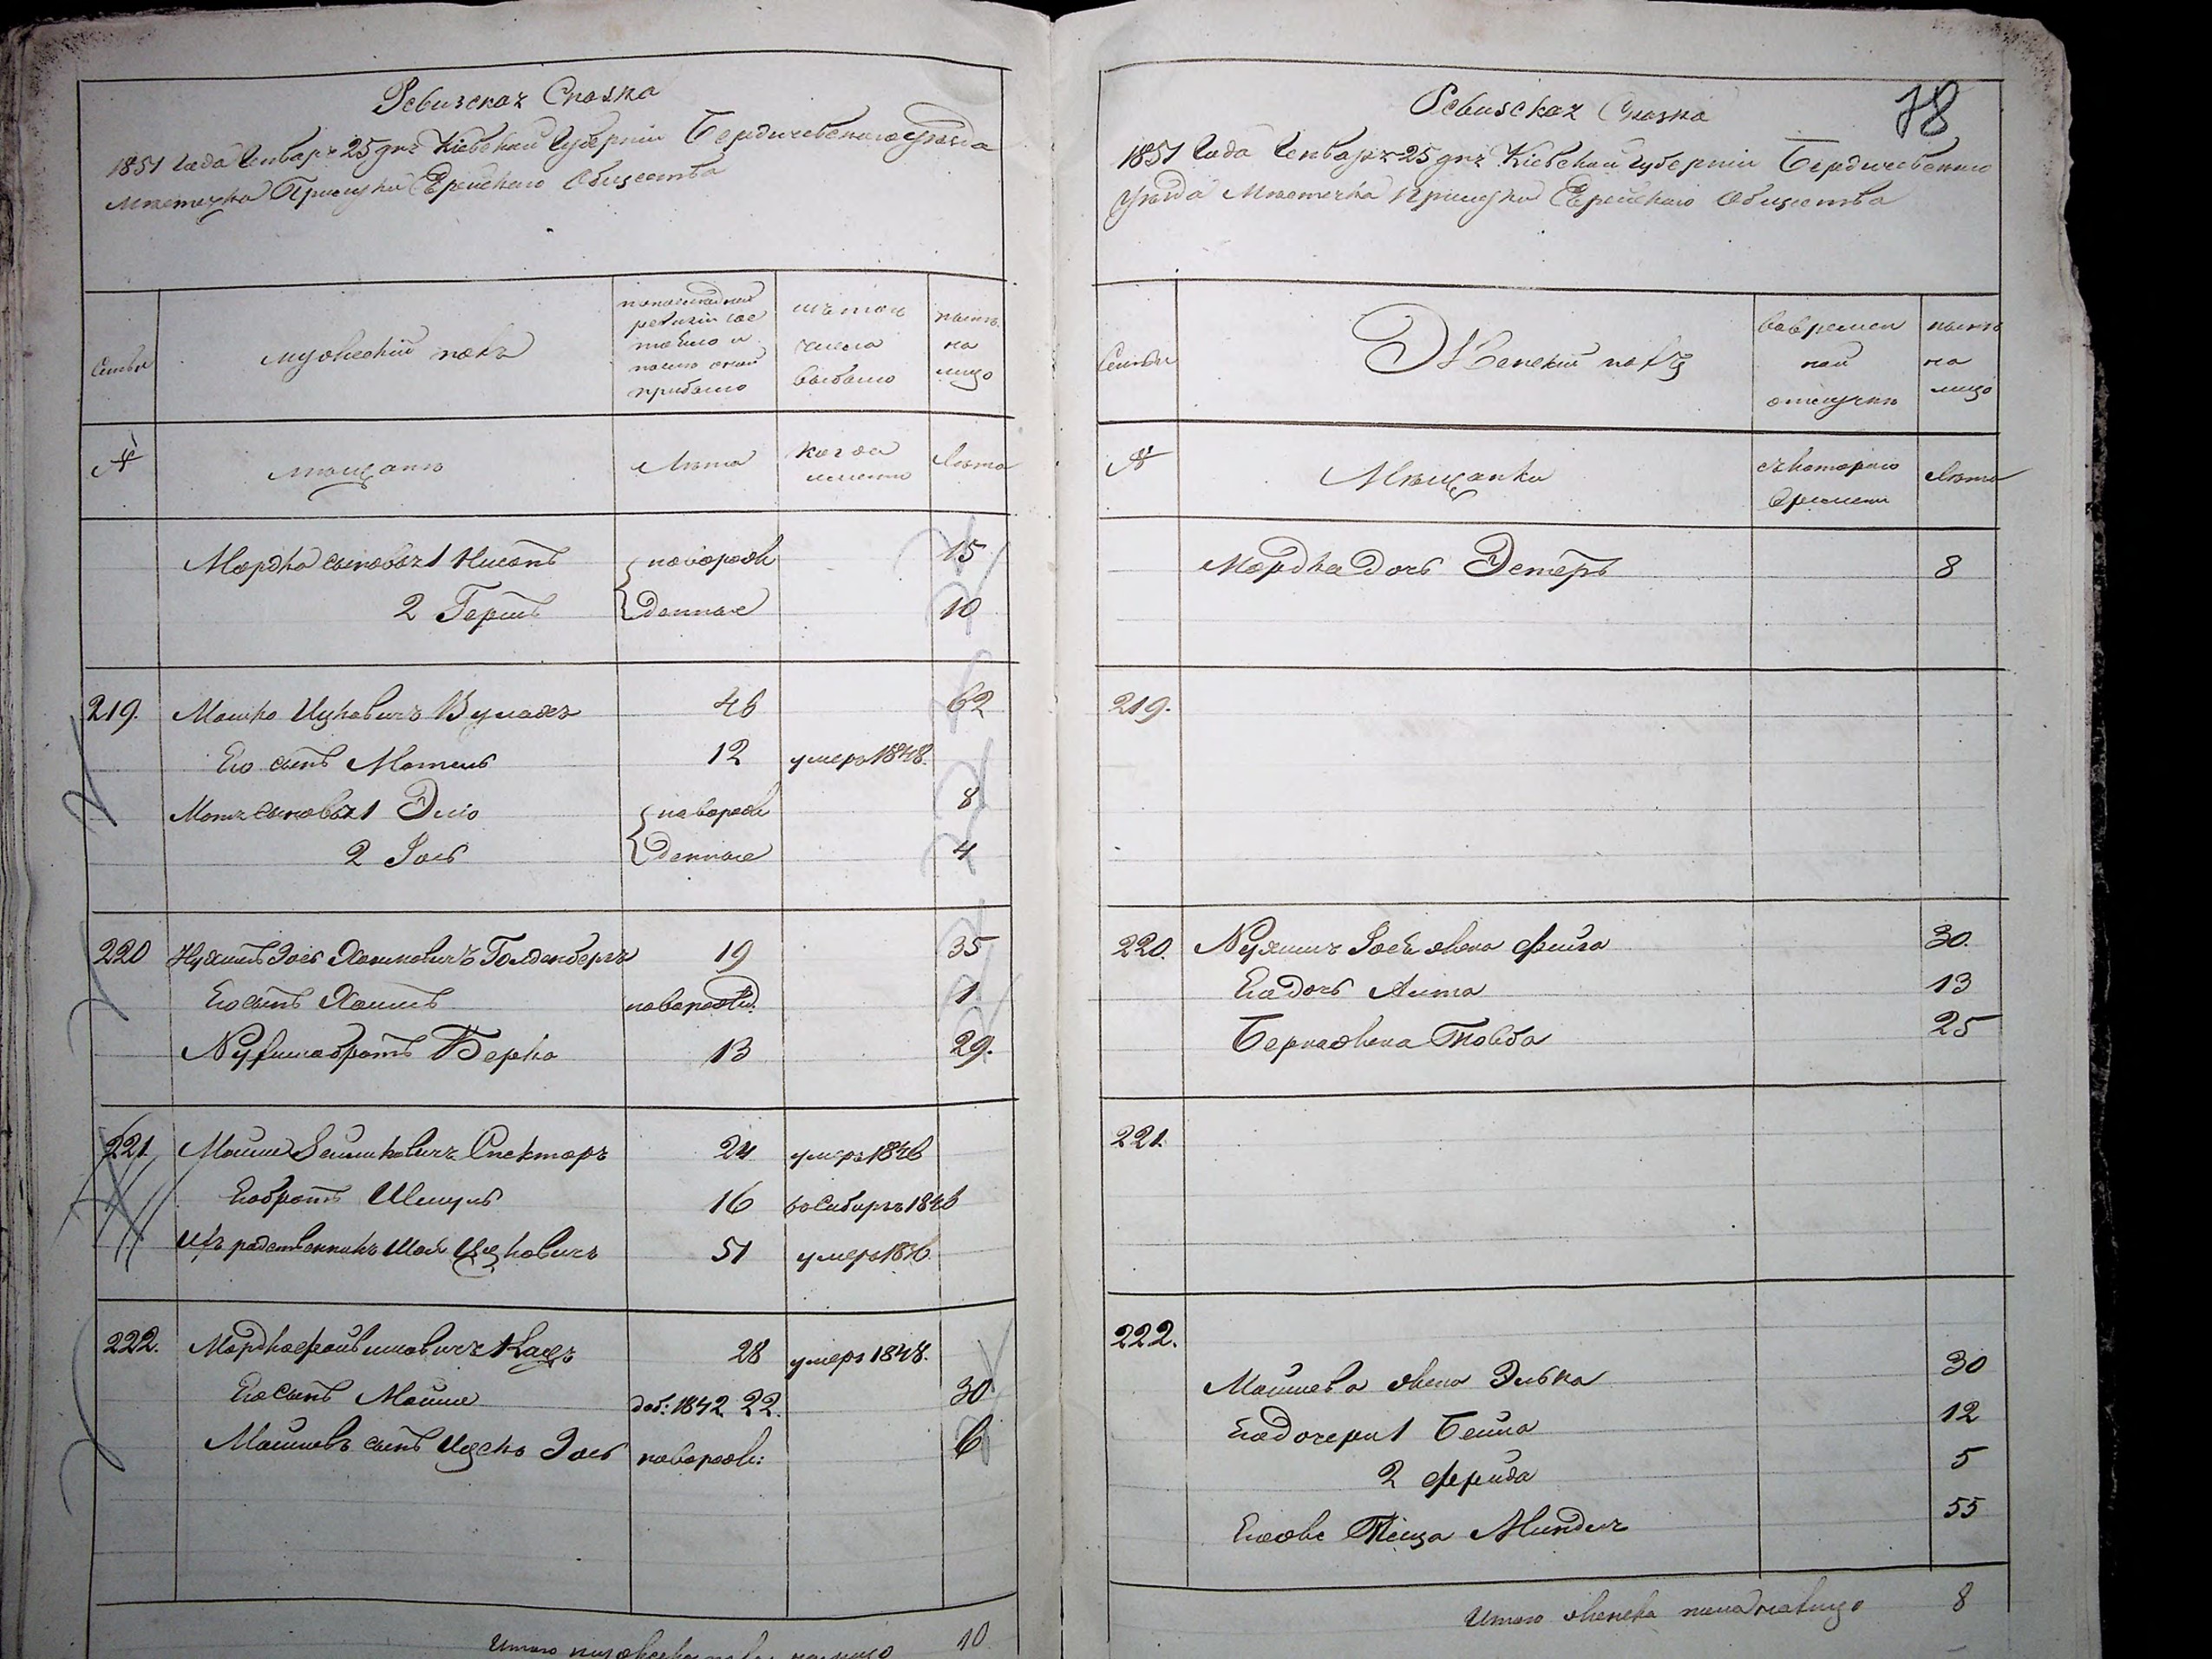 Ревизская Сказка
1851 года Генваря 25 дня Кіевской Губерніи Бердичевского уезда
Местечка Прилуки Еврейского Общества
Семьи
мужеский полъ
по последней
ревизіи сос
тояло и
после оной
прибыло
изъ того
числа
выбыло
ныне
на
лицо
№
мещане
Лета
когда
именно
Лета
Мордка сыновья 1 Нисонъ новорож 15
2 Гершъ денные 10
219. Мошко Ицковичъ 46 62
Его сынъ Мотель 12 умеръ 1848.
Мотя сыновья 1 Элio новорож 8
2 Iось денные 4
220 Нухимъ Iось Хаимовичъ Голденбергъ 19 35
Его сынъ Хаимъ новорожд. 1
Нухима братъ Берко 13 29.
221 Мошко Зельмковичъ Спекторъ 24 умеръ 1846
Его братъ Шмуль 16 въ Сибирь 1846
Ихъ родственникъ Шая Ицковичъ 51 умеръ 1836
222. Мордко Файвишовичъ Кацъ 28 умеръ 1848.
Его сынъ Мошко доб: 1842 22. 30
Мошковъ сынъ Ицекъ Iось новорож: 6
Итого мужеска пола на лицо 10
78
Ревизская Сказка
1851 Года Генваря 25 дня Кіевской губерніи Бердичевского
уезда Местечка Прилуки Еврейского Общества
Семьи
Женский полъ
во времен
ной
отлучке
ныне
на
лицо
№
Мещанки
съ которого
времени
Лета
Мордка дочь Эстеръ 8
219.
220. Нухима Iося жена Фейга 30.
Его дочь Аита 13
Берка жена Товба 25
221.
222.
Мошкова жена Элька 30
Его дочери 1 Бейла 12
2 Фрейда 5
Его же Теща Миндля 55
Итого женска пола на лицо 8